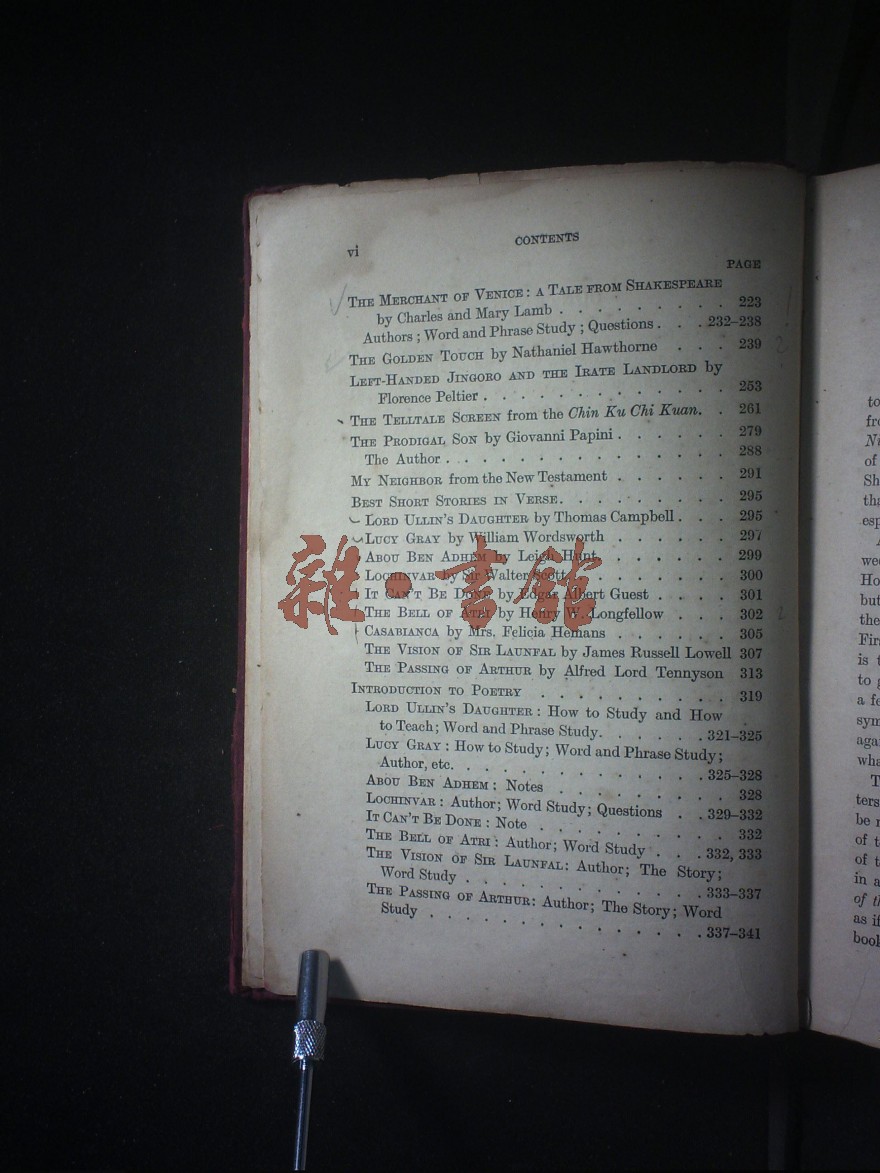 vi
CONTENTS
PAGE
THE MERCHANT OF VENICE: A TALE FROM SHAKESPEARE
by Charles and Mary Lamb . . . . . . . . . 223
Authors; Word and Phrase Study; Questions . . . 232–238
THE GOLDEN TOUCH by Nathaniel Hawthorne . . . 239
LEFT-HANDED JINGORO AND THE IRATE LANDLORD by
Florence Peltier . . . . . . . . . . . . . 253
THE TELLTALE SCREEN from the Chin Ku Chi Kuan. . 261
THE PRODIGAL SON by Giovanni Papini . . . . . . 279
The Author . . . . . . . . . . . . . . 288
MY NEIGHBOR from the New Testament . . . . . . 291
BEST SHORT STORIES IN VERSE. . . . . . . . . 295
LORD ULLIN'S DAUGHTER by Thomas Campbell . . . 295
LUCY GRAY by William Wordsworth . . . . . . 297
ABOU BEN ADHEM by Leigh Hunt . . . . . . 299
LOCHINVAR by Sir Walter Scott . . . . . . . 300
IT CAN'T BE DONE by Edgar Albert Guest . . . . 301
THE BELL OF ATRI by Henry W. Longfellow . . . 302
CASABIANCA by Mrs. Felicia Hemans . . . . . . 305
THE VISION OF SIR LAUNFAL by James Russell Lowell 307
THE PASSING OF ARTHUR by Alfred Lord Tennyson 313
INTRODUCTION TO POETRY . . . . . . . . . . 319
LORD ULLIN'S DAUGHTER: How to Study and How
to Teach; Word and Phrase Study. . . . . . . 321–325
LUCY GRAY: How to Study; Word and Phrase Study;
Author, etc. . . . . . . . . . . . . . 325–328
ABOU BEN ADHEM: Notes . . . . . . . . . 328
LOCHINVAR: Author; Word Study; Questions . . 329–332
IT CAN'T BE DONE: Note . . . . . . . . . . 332
THE BELL OF ATRI: Author; Word Study . . . 332, 333
THE VISION OF SIR LAUNFAL: Author; The Story;
Word Study . . . . . . . . . . . . . 333–337
THE PASSING OF ARTHUR: Author; The Story; Word
Study . . . . . . . . . . . . . . . 337–341
雜·書館
to
fro
Ni
of
Sh
tha
esp
wee
Ho
but
the
Firs
is t
to g
a fe
sym
agai
wha
T
ters
be r
of t
of t
in a
of th
as if
book